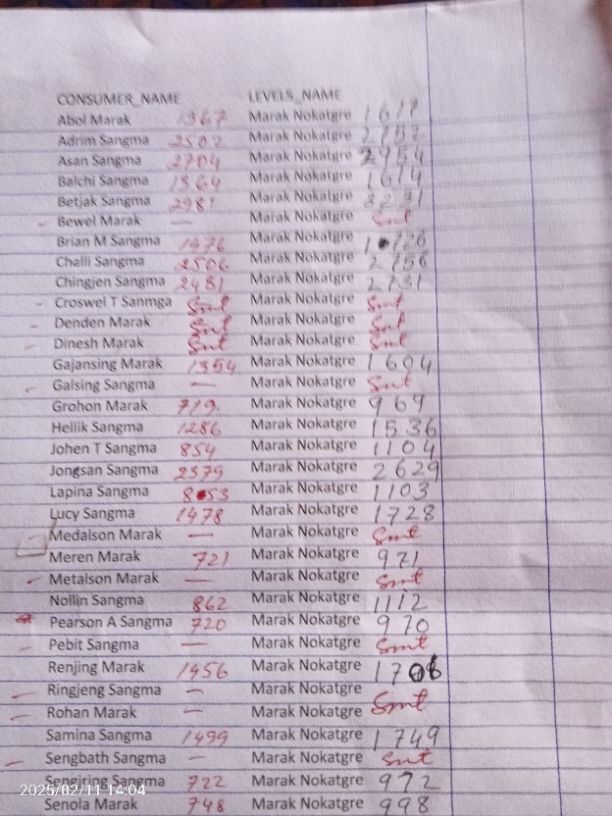 CONSUMER_NAME LEVELS_NAME
Abol Marak 1367 Marak Nokatgre 1617
Adrim Sangma 2502 Marak Nokatgre 2752
Asan Sangma 2704 Marak Nokatgre 2954
Balchi Sangma 1364 Marak Nokatgre 1614
Betjak Sangma 2981 Marak Nokatgre 3231
- Bewel Marak — Marak Nokatgre Smt
Brian M Sangma 1476 Marak Nokatgre 1726
Challi Sangma 2506 Marak Nokatgre 2756
Chingjen Sangma 2481 Marak Nokatgre 2731
- Croswel T Sanmga Smt Marak Nokatgre Smt
- Denden Marak Smt Marak Nokatgre Smt
- Dinesh Marak Smt Marak Nokatgre Smt
Gajansing Marak 1354 Marak Nokatgre 1604
- Galsing Sangma — Marak Nokatgre Smt
Grohon Marak 719. Marak Nokatgre 969
Hellik Sangma 1286 Marak Nokatgre 1536
Johen T Sangma 854 Marak Nokatgre 1104
Jongsan Sangma 2379 Marak Nokatgre 2629
Lapina Sangma 853 Marak Nokatgre 1103
Lucy Sangma 1478 Marak Nokatgre 1728
- Medalson Marak — Marak Nokatgre Smt
Meren Marak 721 Marak Nokatgre 971
- Metalson Marak — Marak Nokatgre Smt
Nollin Sangma 862 Marak Nokatgre 1112
Pearson A Sangma 720 Marak Nokatgre 970
- Pebit Sangma — Marak Nokatgre Smt
Renjing Marak 1456 Marak Nokatgre 1706
- Ringjeng Sangma — Marak Nokatgre
- Rohan Marak — Marak Nokatgre Smt
Samina Sangma 1499 Marak Nokatgre 1749
- Sengbath Sangma — Marak Nokatgre Smt
Sengiring Sangma 722 Marak Nokatgre 972
2025/02/11 14:04
Senola Marak 748 Marak Nokatgre 998